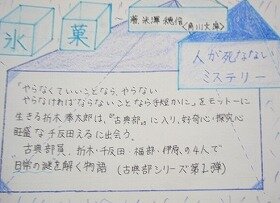 氷菓
～著.米澤穂信〈角川文庫〉
人が死なない
ミステリー
「やらなくていいことなら、やらない
やらなければならないことなら手短かに」をモットーに
生きる折木奉太郎は、"古典部"に入り、好奇心・探究心
旺盛な千反田えるに出会う。
古典部員、折木・千反田・福部・伊原の4人で
日常の謎を解く物語　(古典部シリーズ第1弾)